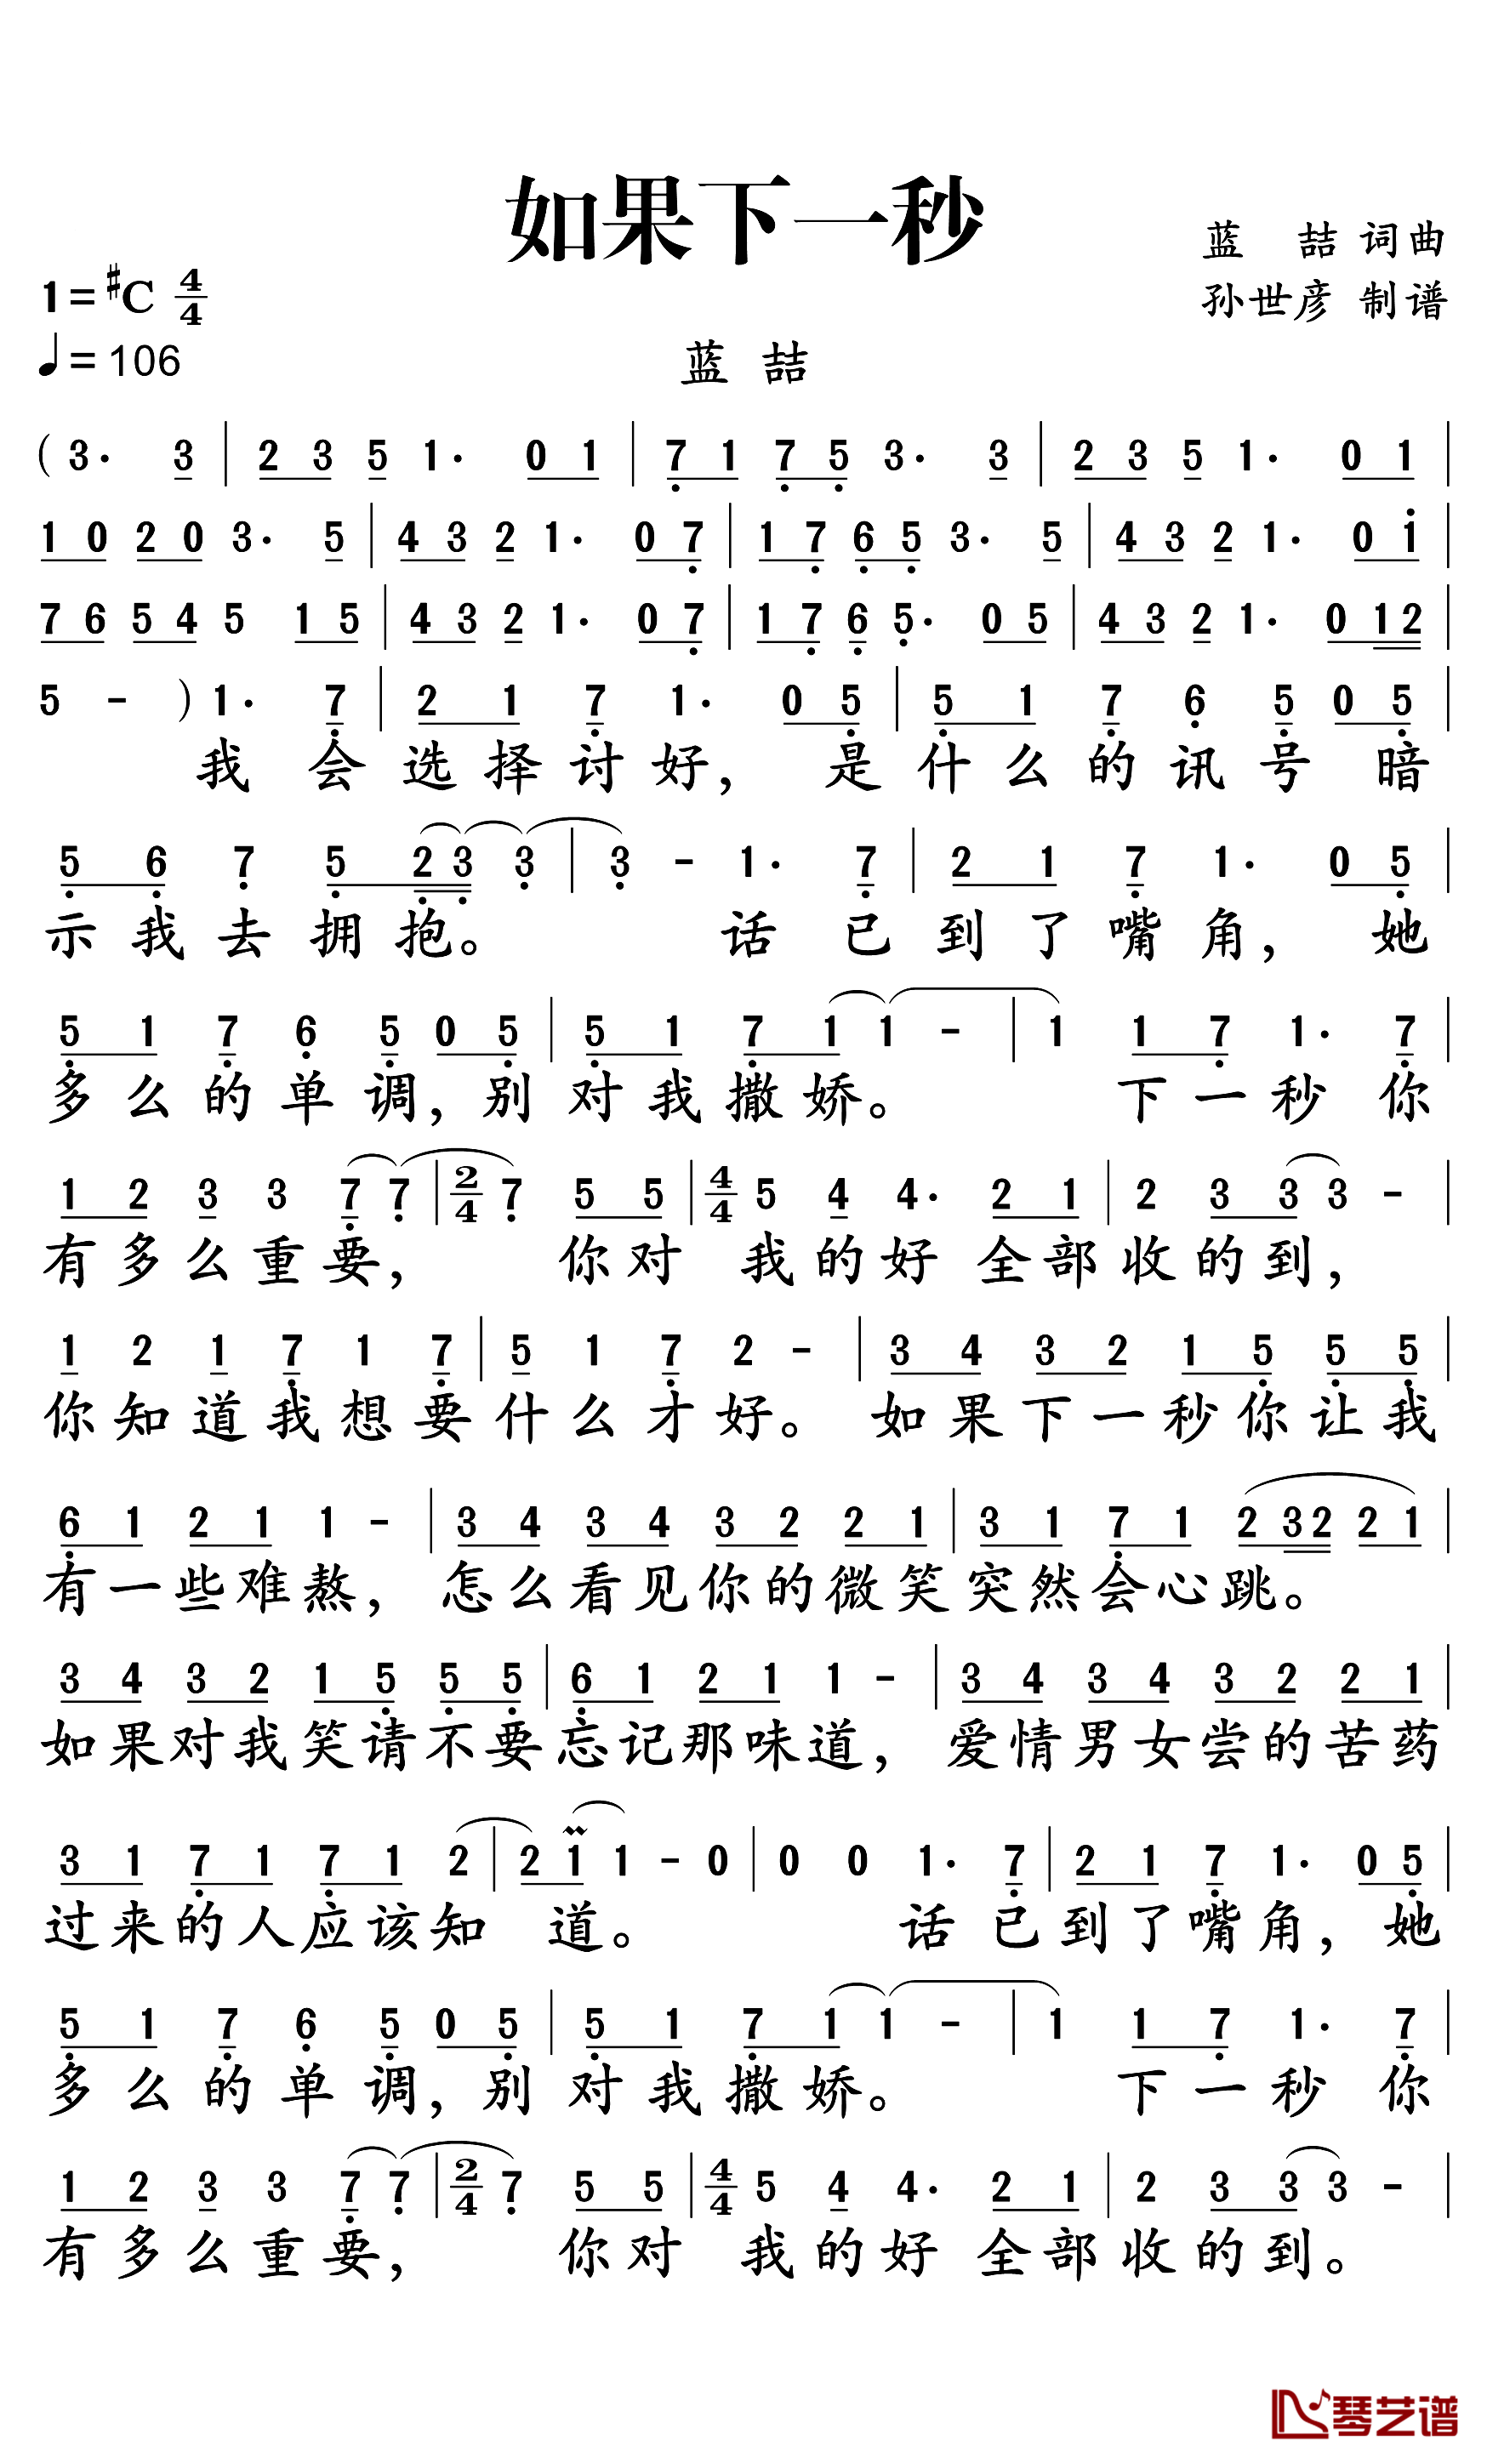 如果下一秒
蓝 喆 词曲
1=#C 4/4
孙世彦 制谱
♩=106
蓝 喆
( 3· 3 | 2 3 5 1· 0 1 | 7 1 7 5 3· 3 | 2 3 5 1· 0 1 |
1 0 2 0 3· 5 | 4 3 2 1· 0 7 | 1 7 6 5 3· 5 | 4 3 2 1· 0 1 |
7 6 5 4 5 1 5 | 4 3 2 1· 0 7 | 1 7 6 5· 0 5 | 4 3 2 1· 0 1 2 |
5 - ) 1· 7 | 2 1 7 1· 0 5 | 5 1 7 6 5 0 5 |
我 会 选 择 讨 好, 是 什 么 的 讯 号 暗
5 6 7 5 2 3 3 | 3 - 1· 7 | 2 1 7 1· 0 5 |
示 我 去 拥 抱。 话 已 到 了 嘴 角, 她
5 1 7 6 5 0 5 | 5 1 7 1 1 - | 1 1 7 1· 7 |
多 么 的 单 调, 别 对 我 撒 娇。 下 一 秒 你
1 2 3 3 7 7 | 2/4 7 5 5 | 4/4 5 4 4· 2 1 | 2 3 3 3 - |
有 多 么 重 要, 你 对 我 的 好 全 部 收 的 到,
1 2 1 7 1 7 | 5 1 7 2 - | 3 4 3 2 1 5 5 5 |
你 知 道 我 想 要 什 么 才 好。 如 果 下 一 秒 你 让 我
6 1 2 1 1 - | 3 4 3 4 3 2 2 1 | 3 1 7 1 2 3 2 2 1 |
有 一 些 难 熬, 怎 么 看 见 你 的 微 笑 突 然 会 心 跳。
3 4 3 2 1 5 5 5 | 6 1 2 1 1 - | 3 4 3 4 3 2 2 1 |
如 果 对 我 笑 请 不 要 忘 记 那 味 道, 爱 情 男 女 尝 的 苦 药
3 1 7 1 7 1 2 | 2 1 1 - 0 | 0 0 1· 7 | 2 1 7 1· 0 5 |
过 来 的 人 应 该 知 道。 话 已 到 了 嘴 角, 她
5 1 7 6 5 0 5 | 5 1 7 1 1 - | 1 1 7 1· 7 |
多 么 的 单 调, 别 对 我 撒 娇。 下 一 秒 你
1 2 3 3 7 7 | 2/4 7 5 5 | 4/4 5 4 4· 2 1 | 2 3 3 3 - |
有 多 么 重 要, 你 对 我 的 好 全 部 收 的 到。
琴艺谱